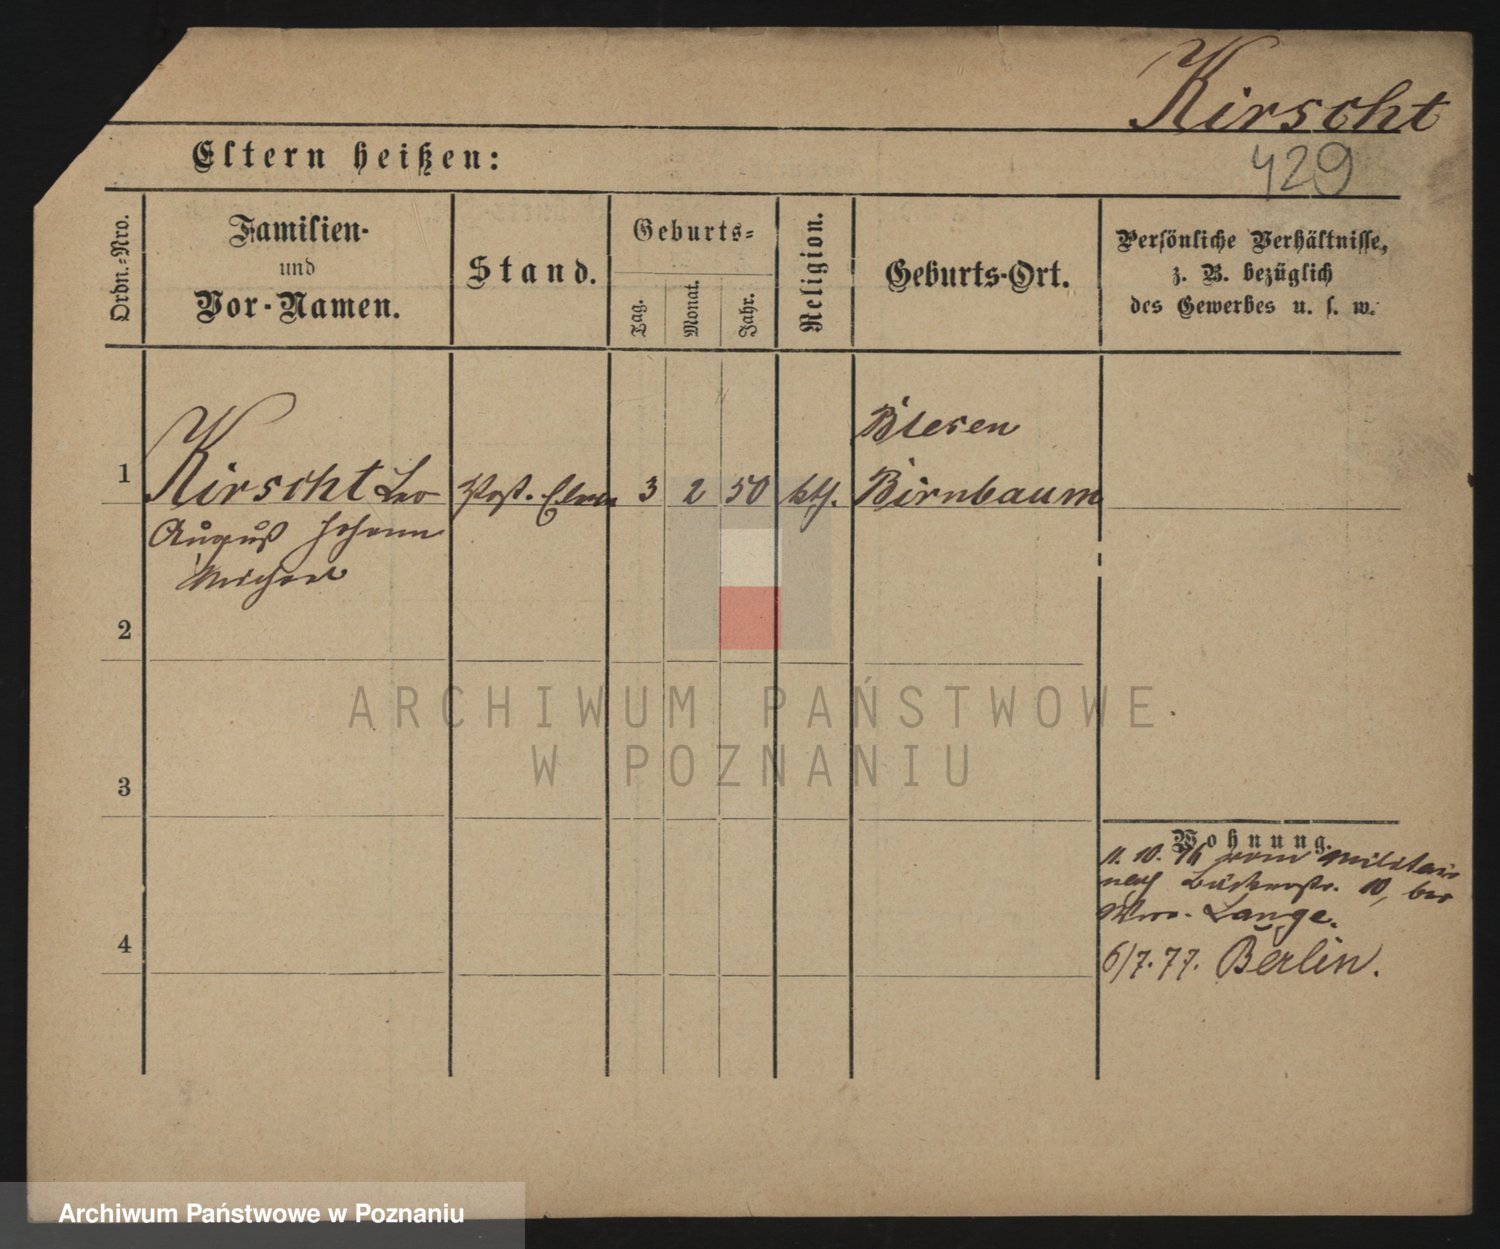 Kirscht
429
Eltern heißen:
Ordn.-Nro.
Familien-
und
Vor-Namen.
Stand.
Geburts-
Tag.
Monat.
Jahr.
Religion.
Geburts-Ort.
Persönliche Verhältnisse,
z. B. bezüglich
des Gewerbes u. s. w.
Blesen
1 Kirscht Leo Post. Eleve 3 2 50 kth. Birnbaum
August Johann
Michael
2
3
4
Wohnung.
11. 10. 76 vom Militair
nach Bäckerstr. 10, bei
Lange.
6/7. 77. Berlin.
ARCHIWUM PAŃSTWOWE
W POZNANIU
Archiwum Państwowe w Poznaniu